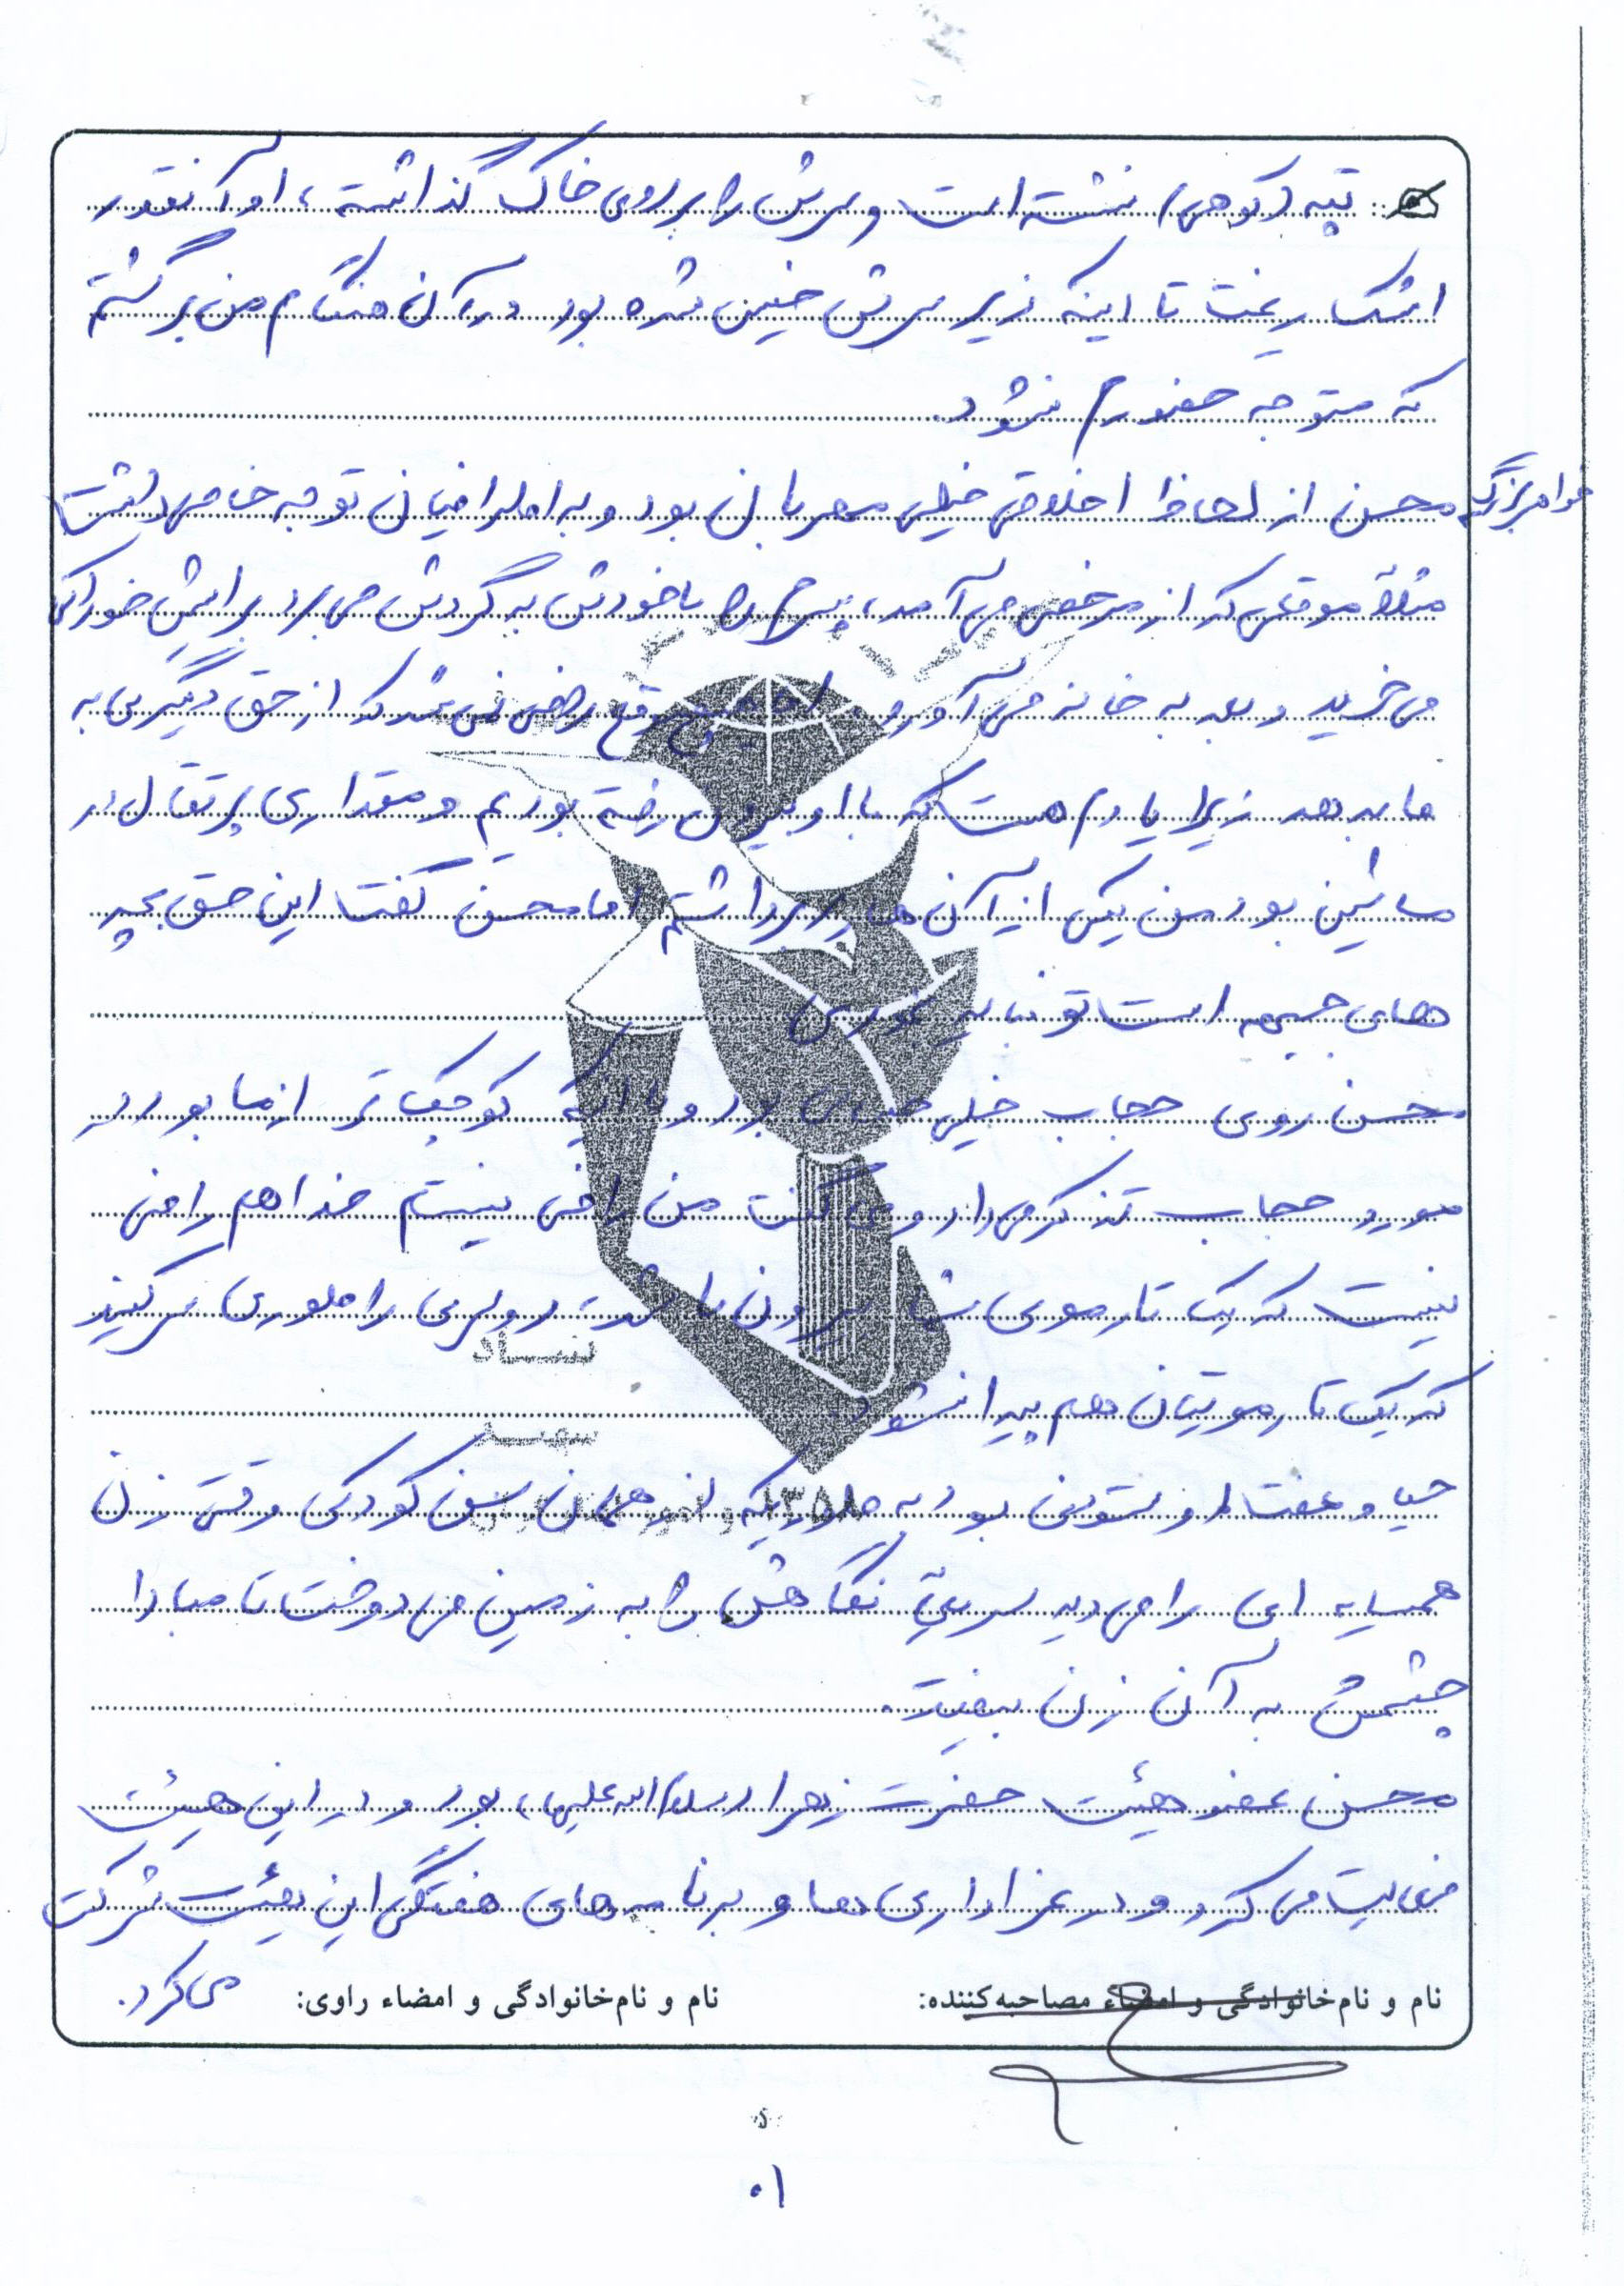 تپه (کوهی) نشسته است و سرش را بر روی خاک گذاشته، او آنقدر
اشک ریخت تا اینکه زیر سرش خیس شده بود در آن هنگام من برگشتم
که متوجه حضورم نشود.
خواهر بزرگ
محسن از لحاظ اخلاقی خیلی مهربان بود و به اطرافیان توجه خاصی داشت
مثلاً موقعی که از مرخصی می آمد، پسرم را با خودش به گردش می برد برایش خوراکی
می خرید و بعد به خانه می آورد. اما هیچ وقع راضی نمی شد که از حق دیگری به
ما بدهد زیرا یادم هست که با او بیرون رفته بودیم و مقداری پرتقال در
ماشین بود من یکی از آن ها را برداشتم اما محسن گفت این حق بچه
های جبهه است تو نباید بخوری
محسن روی حجاب خیلی حساس بود و با اینکه کوچک تر از ما بود در
مورد حجاب تذکر می داد و می گفت من راضی نیستم خدا هم راضی
نیست که یک تار موی شما بیرون باشد روسری را طوری سر کنید
که یک تار مویتان هم پیدا نشود.
حیا و عفت او ستودنی بود به طوریکه از همان سن کودکی وقتی زن
همسایه ای را می دید سریع نگاهش را به زمین می دوخت تا مبادا
چشمش به آن زن بیفتد.
محسن عضو هیئت حضرت زهرا (سلام الله علیها) بود و در این هیئت
فعالیت می کرد و در عزاداری ها و برنامه های هفتگی این هیئت شرکت
می کرد.
نام و نام خانوادگی و امضاء مصاحبه کننده:
نام و نام خانوادگی و امضاء راوی:
۱۰